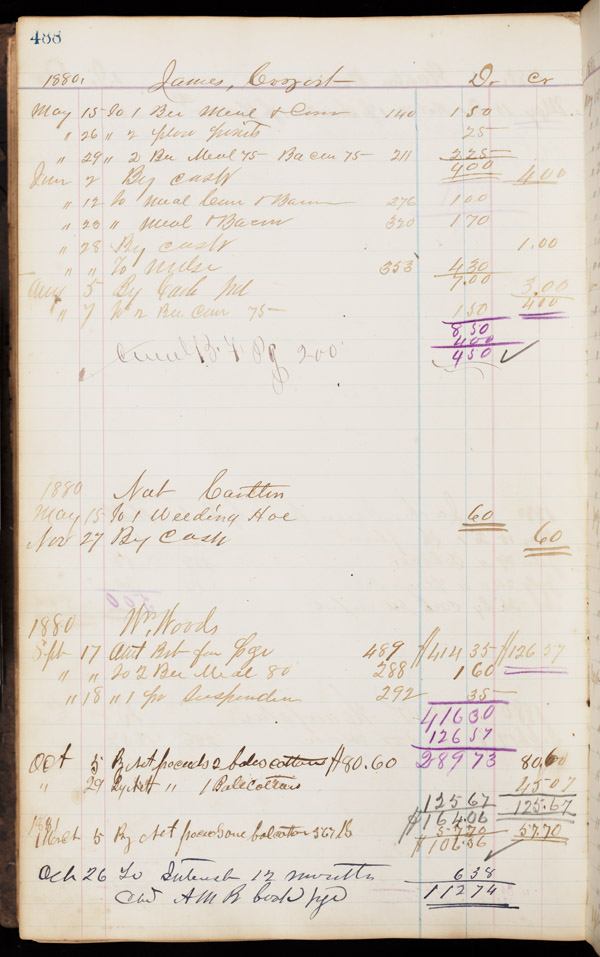 488
1880. James, Dr Cr
May 15 To 1 Bu Meal & Corn 140 1 50
" 26 " 2 plow points 25
" 29 " 2 Bu Meal 75 Bacon 75 211 2 25
4 00
June 2 By cash 4 00
" 12 To meal Corn & Bacon 276 1 00
" 23 " meal & Bacon 320 1 70
" 28 By cash 1.00
" " To mdse 353 4 30
7.00
Aug 5 By Cash 3.00
4 00
" 7 To 2 Bu Corn 75 1 50
8 50
4 00
4 50 ✓
Pg 200
1880 Nat
May 15 To 1 Weeding Hoe 60
Nov 27 By Cash 60
1880 Wm Woods
Sept 17 Amt 489 $414 35 $126 57
" " To 2 Bu Meal 80 288 1 60
" 18 " 1 pr Suspenders 292 35
416 30
126 57
289 73
Oct 5 By Net proceeds 2 bales cotton $80.60 80.60
" 29 By Nett " 1 Bale Cotton 45.07
125 67 125.67
$164.06
1881
March 5 By Net proceeds one bale cotton 567 lb 57.70 57.70
$106.36
Oct 26 To Interest 12 months 6 38
A M B book page 112 74